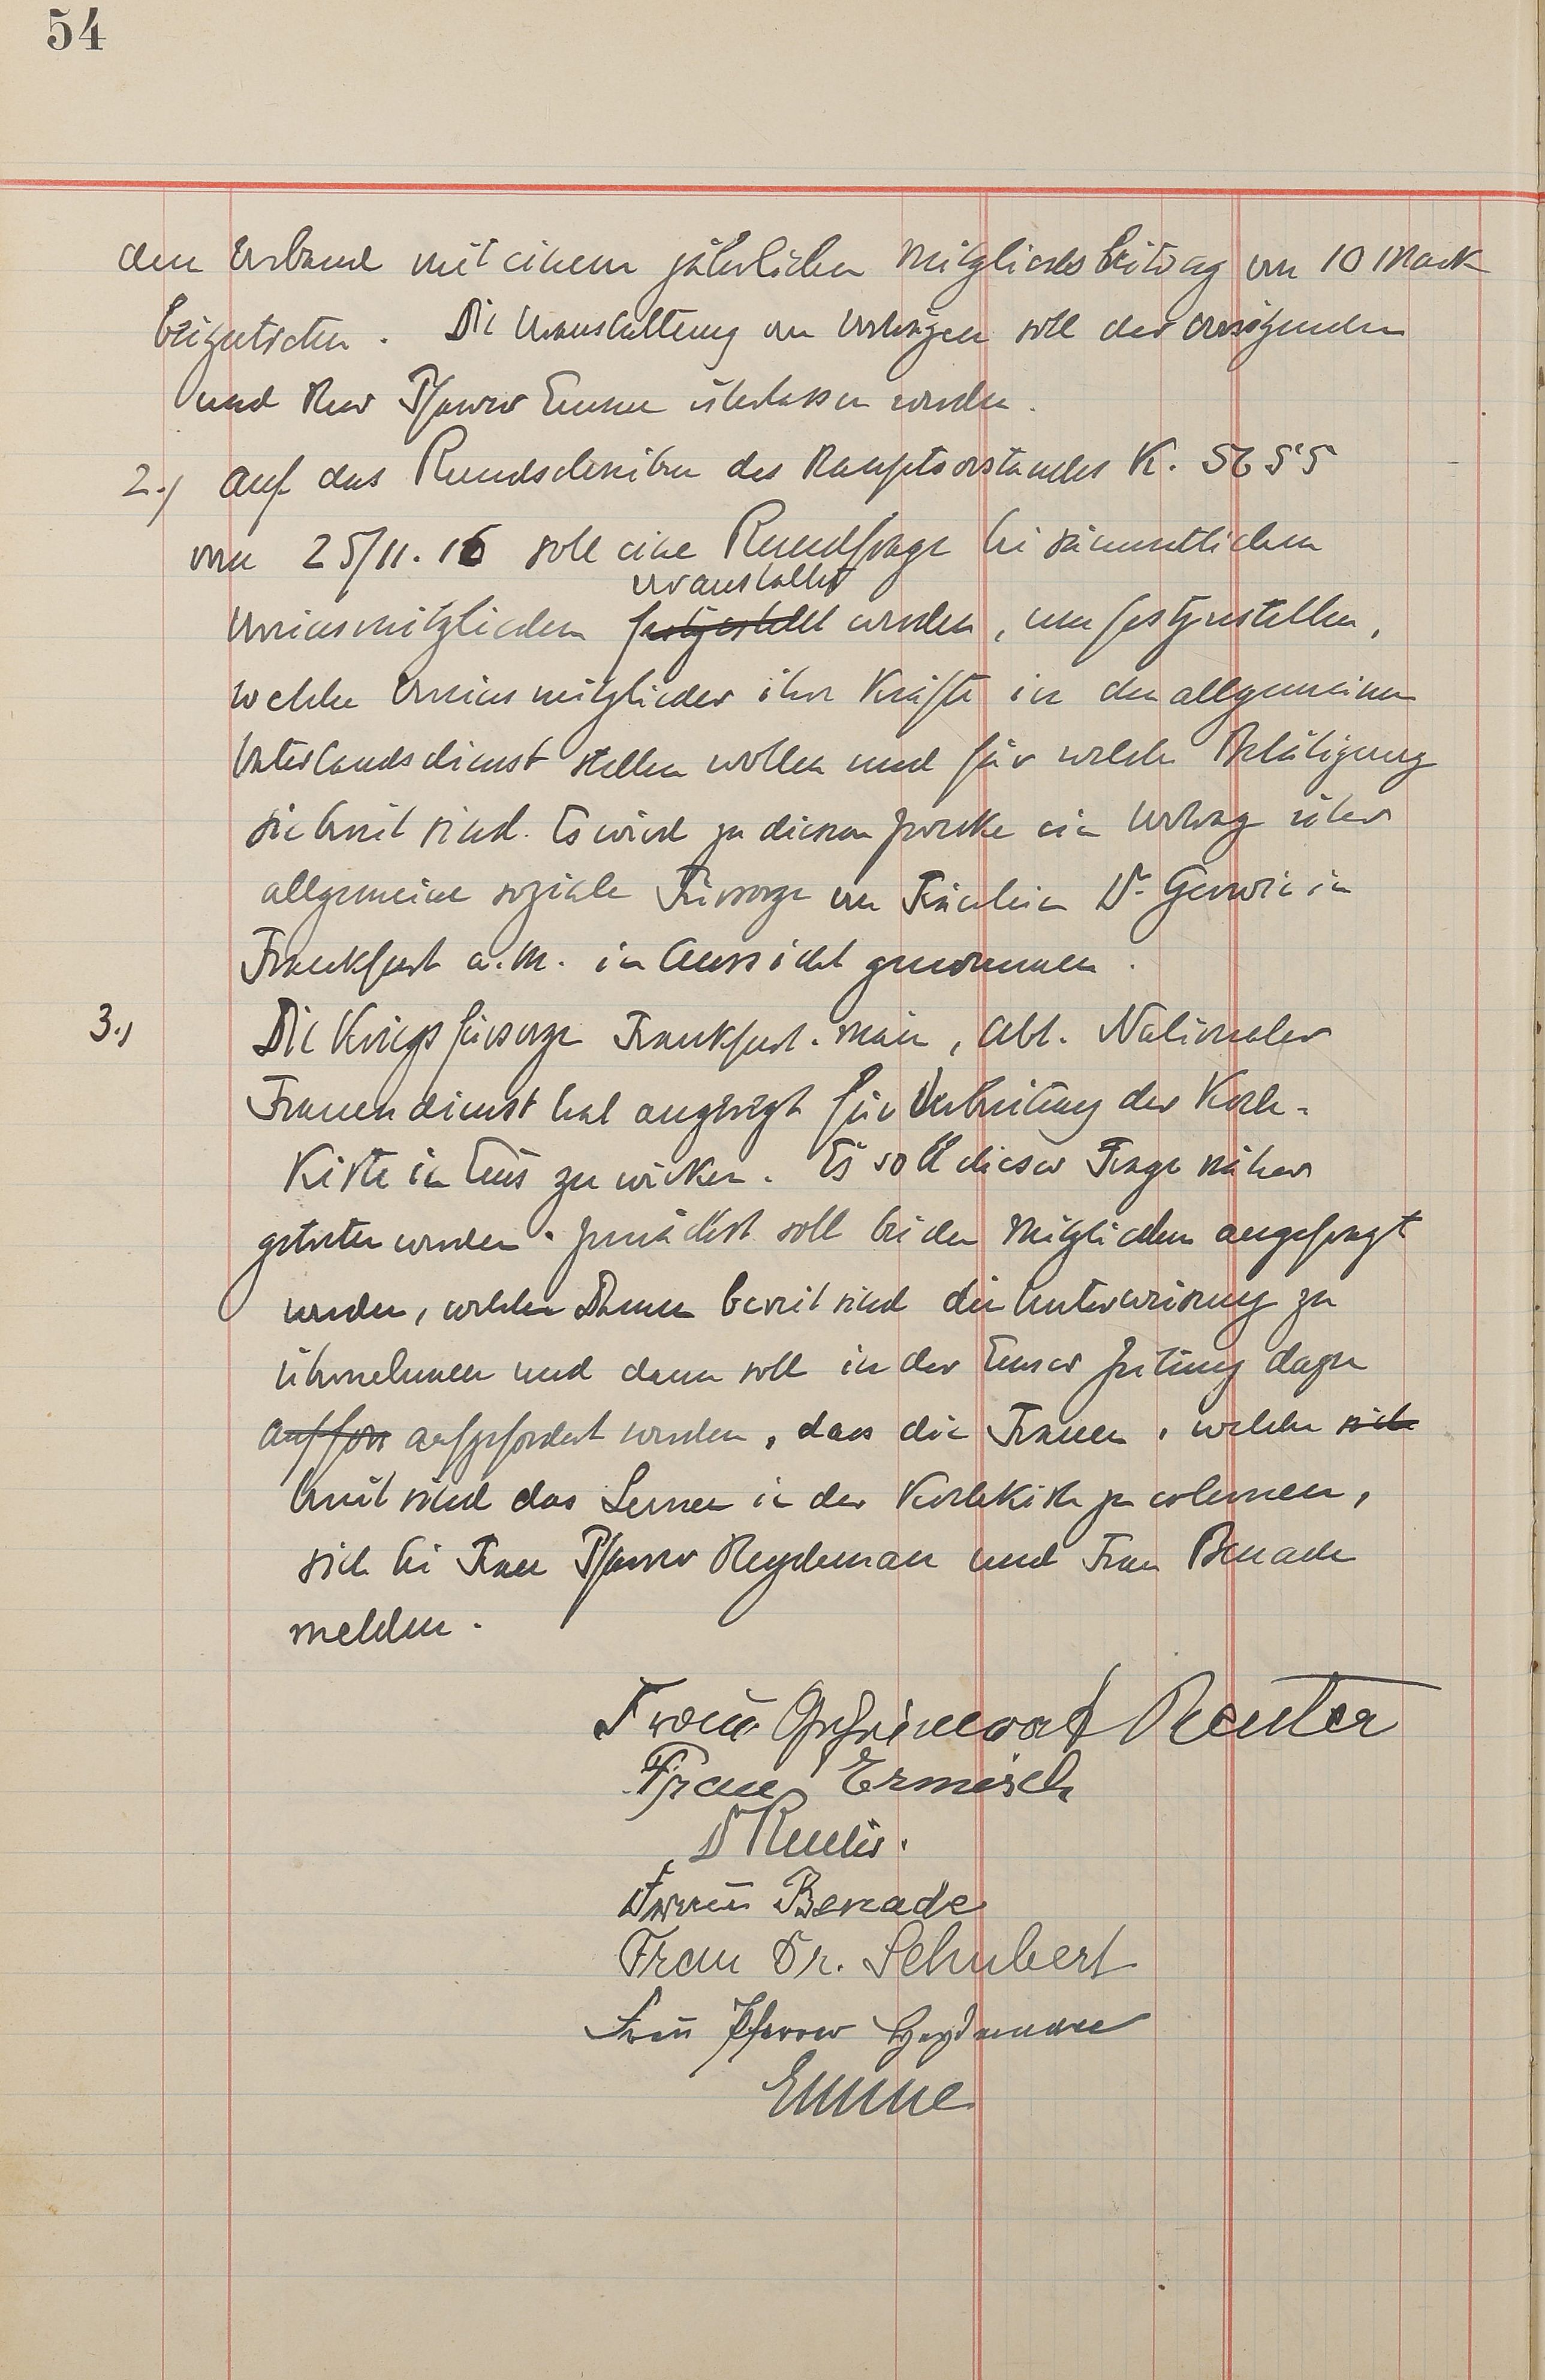 54
dem Verband mit einem jährlichen Mitgliedsbeitrag von 10 Mark
beizutreten. Die Veranstaltung von Vorträgen soll der Vorsitzenden
und Herr Pfarrer Emme überlassen werden.
2.) Auf das Rundschreiben des Hauptvorstandes K. 5655
vom 25/11.16 soll eine Rundfrage bei sämmtlichen
veranstaltet
Vereinsmitgliedern festgestellt werden, um festzustellen,
welche Vereinsmitglieder ihre Kräfte in den allgemeinen
Vaterlandsdienst stellen wollen und für welche Betätigung
sie bereit sind. Es wird zu diesem Zwecke ein Vortrag über
allgemeine soziale Fürsorge von Fräulein Dr. in
Frankfurt a. M. in Aussicht genommen.
3.) Die Kriegsfürsorge Frankfurt-Main, Abt. Nationaler
Frauendienst hat angeregt für Verbreitung der Koch-
Kiste in Ems zu wirken. Es soll dieser Frage näher
getreten werden. Zunächst soll bei den Mitgliedern angefragt
werden, welche Damen bereit sind die Unterweisung zu
übernehmen und dann soll in der Emser Zeitung dazu
auffor aufgefordert werden, dass die Frauen, welche sich
bereit sind das Lernen in der Kochkiste zu erlernen,
sich bei Frau Pfarrer Heydemann und Frau Benade
melden.
Frau Geheimrat Reuter
Frau Ermisch
Dr Reuter.
Frau Benade
Frau Dr. Schubert
Frau Pfarrer Heydemann
Emme